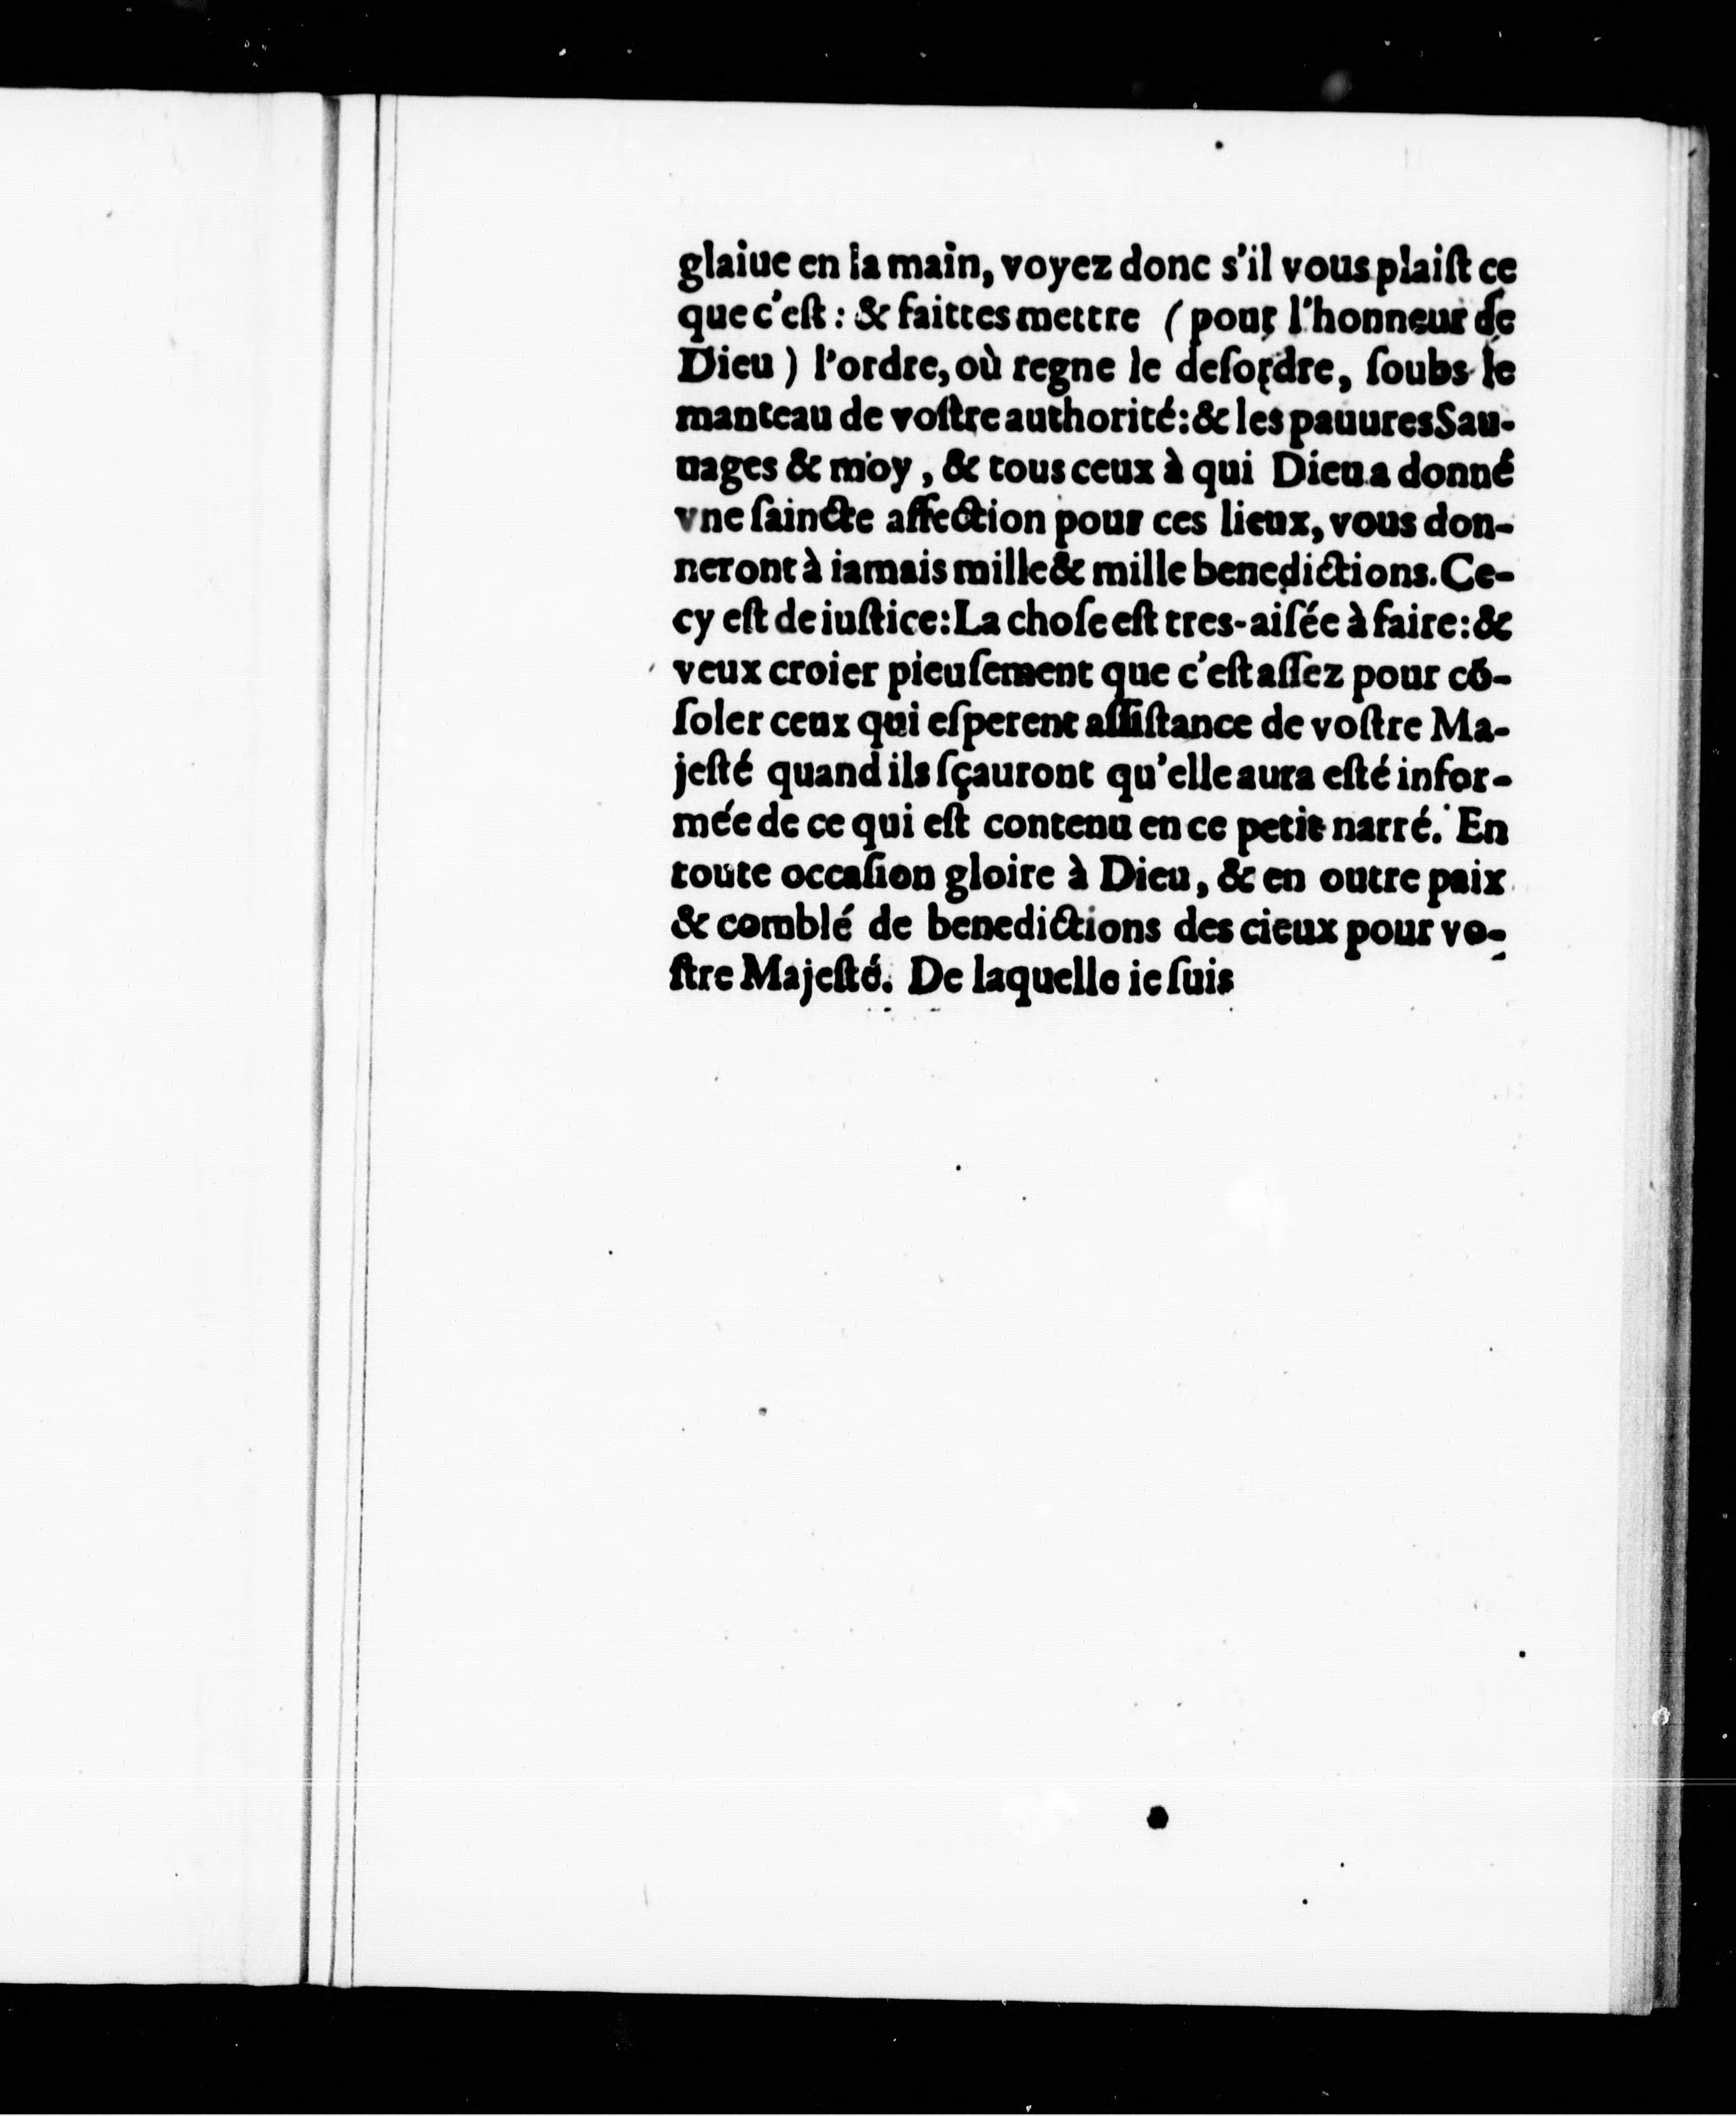 glaiue en la main, voyez donc s'il vous plaiſt ce
que c'eſt : & faittes mettre (pour l'honneur de
Dieu) l'ordre, où regne le deſordre, ſoubs le
manteau de voſtre authorité: & les pauures Sau-
uages & moy, & tous ceux à qui Dieu a donné
vne ſaincte affection pour ces lieux, vous don-
neront à iamais mille & mille benedictions. Ce-
cy eſt de iuſtice: La choſe eſt tres-aiſée à faire: &
veux croier pieuſement que c'eſt aſſez pour cō-
ſoler ceux qui eſperent aſſiſtance de voſtre Ma-
jeſté quand ils ſçauront qu'elle aura eſté infor-
mée de ce qui eſt contenu en ce petit narré. En
toute occaſion gloire à Dieu, & en outre paix
& comblé de benedictions des cieux pour vo-
ſtre Majeſté. De laquelle ie ſuis